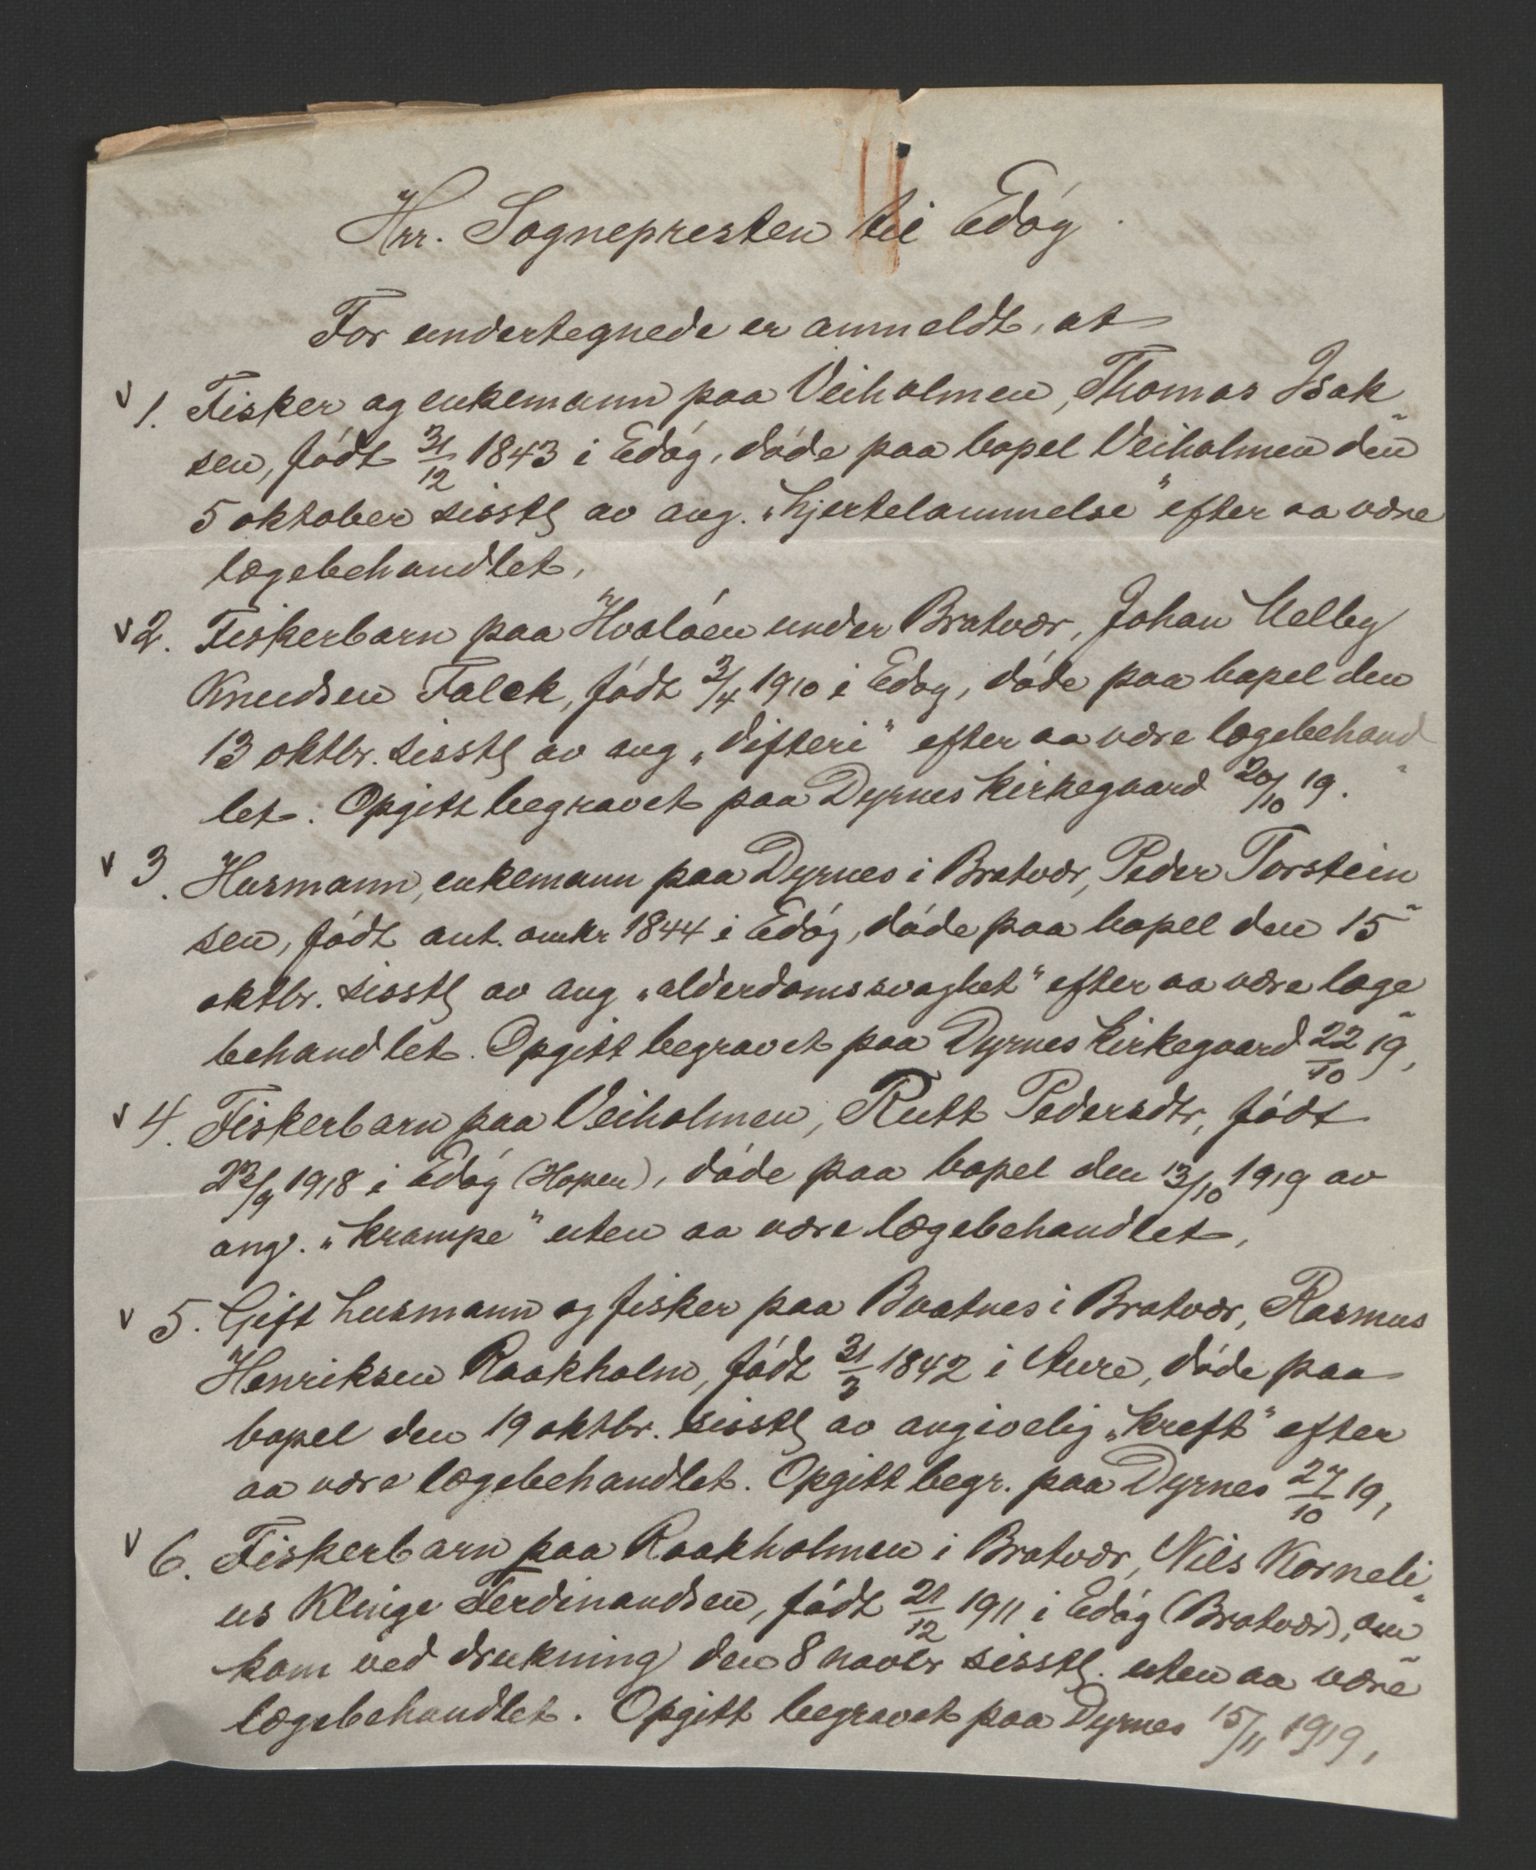 Hrr. Sognepresten til Edøy
For undertegnede er anmeldt, at
v 1. Fisker og enkemann paa Veiholmen, Thomas Isak-
sen, født 31/12 1843 i Edøy, døde paa bopel Veiholmen den
5 oktober sisstl av ang. "hjertelammelse" efter aa være
lægebehandlet,
v 2. Fiskerbarn paa Hvaløen under Bratvær, Johan Melby
Knudsen Falck, født 3/4 1910 i Edøy, døde paa bopel den
13 oktbr. sisstl av ang "difteri" efter aa være lægebehand-
let. Opgitt begravet paa Dyrnes kirkegaard 20/10 19.
v 3. Husmann, enkemann paa Dyrnes i Bratvær, Peder Torstein-
sen, født ant. omkr 1844 i Edøy, døde paa bopel den 15
oktbr. sisstl av ang "alderdomssvaghet" efter aa være læge-
behandlet. Opgitt begravet paa Dyrnes kirkegaard 22/10 19,
v 4. Fiskerbarn paa Veiholmen, Rutt Pedersdtr, født
23/9 1918 i Edøy (Hopen), døde paa bopel den 13/10 1919 av
ang. "krampe" uten aa være lægebehandlet,
v 5. Gift husmann og fisker paa Baatnes i Bratvær, Rasmus
Henriksen Raakholm, født 31/3 1842 i Aure, døde paa
bopel den 19 oktbr. sisstl av angivelig "kreft" efter
aa være lægebehandlet. Opgitt begr. paa Dyrnes 27/10 19,
v 6. Fiskerbarn paa Raakholmen i Bratvær, Nils Korneli-
us Klinge Ferdinandsen, født 21/12 1911 i Edøy (Bratvær), om-
kom ved drukning den 8 novbr sisstl. uten aa være
lægebehandlet. Opgitt begravet paa Dyrnes 15/11 1919,